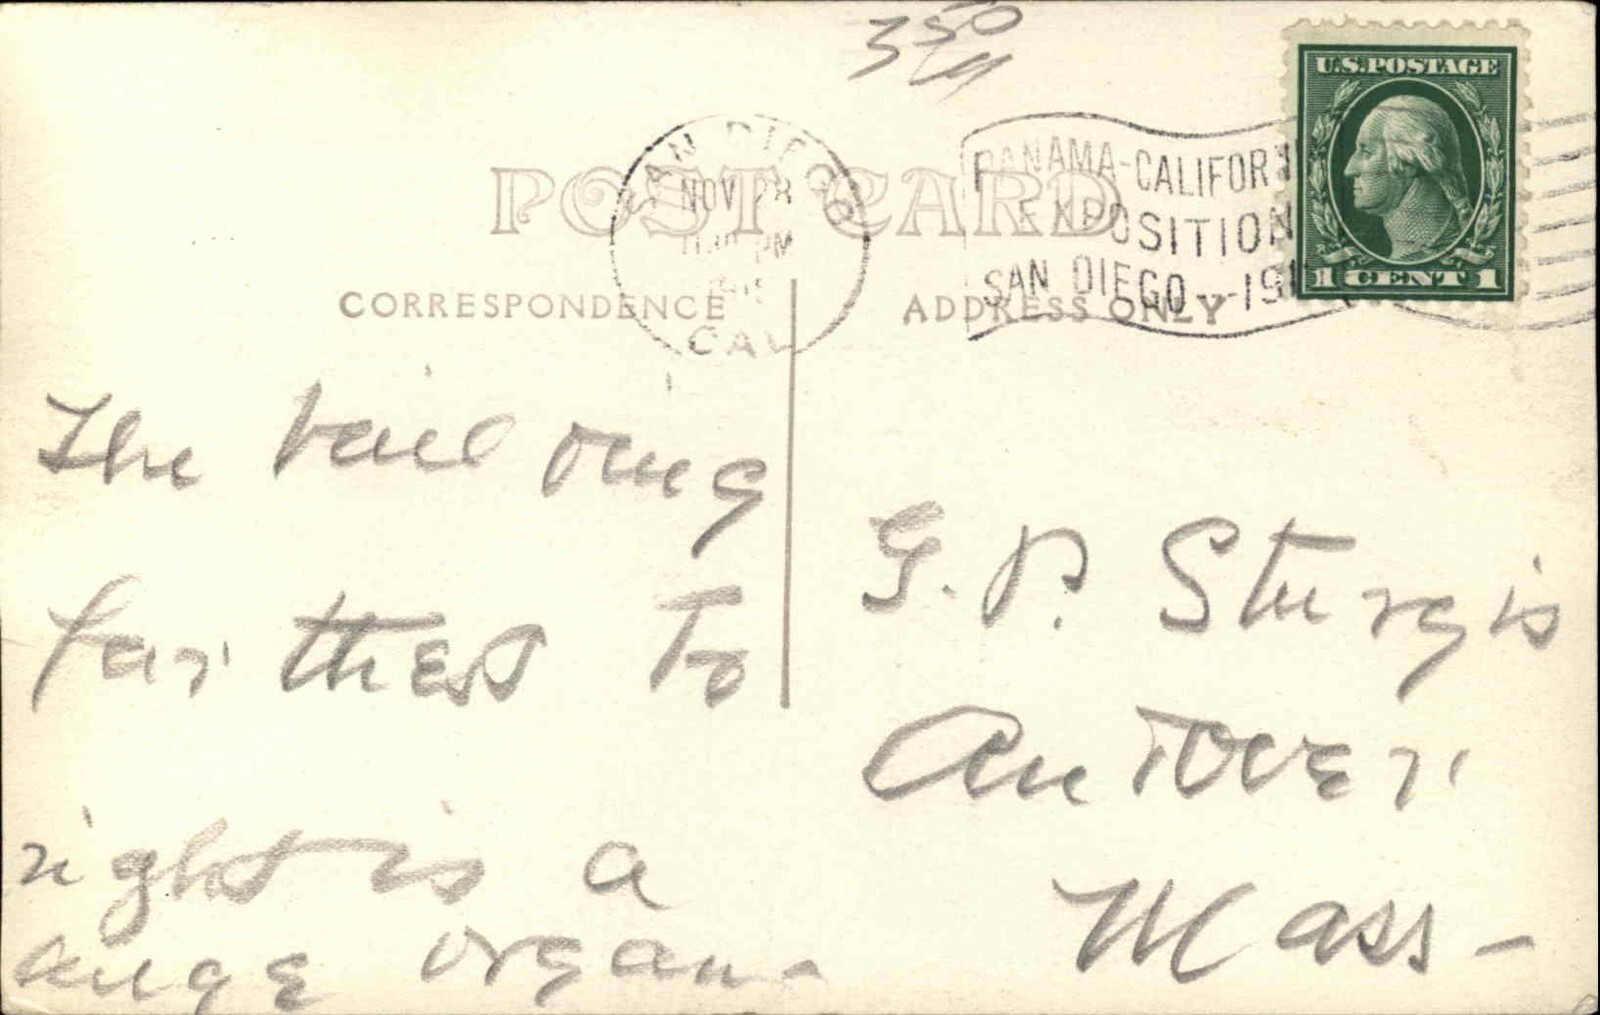 3 50
U.S. POSTAGE
1 CENT 1
SAN DIEGO
NOV 28
PM
CAL
PANAMA-CALIFOR
EXPOSITION
SAN DIEGO -19
POST CARD
CORRESPONDENCE
ADDRESS ONLY
The
farthest to
right is a
organ-
G. P. Sturgis
Andover
Mass-